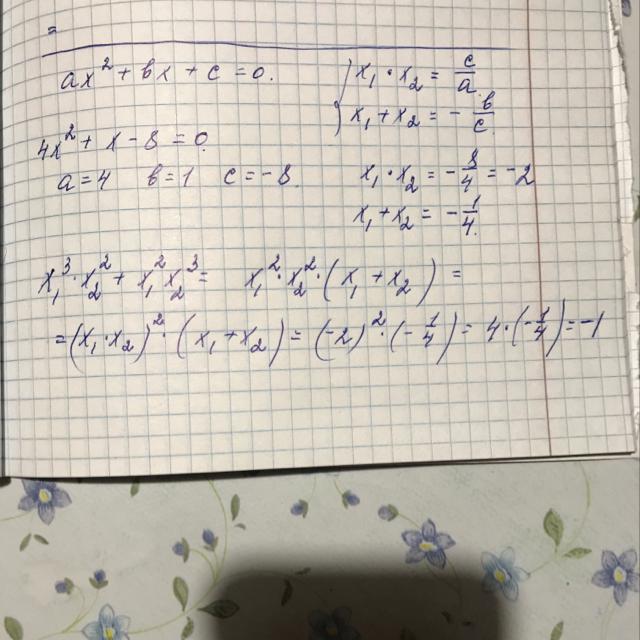 =
ax² + bx + c = 0.
x₁ · x₂ = c/a
x₁ + x₂ = - b/c.
4x² + x - 8 = 0
a = 4 b = 1 c = -8.
x₁ · x₂ = - 8/4 = -2
x₁ + x₂ = - 1/4.
x₁³ · x₂² + x₁² x₂³ = x₁² · x₂² · (x₁ + x₂) =
= (x₁ · x₂)² · (x₁ + x₂) = (-2)² · (- 1/4) = 4 · (- 1/4) = -1